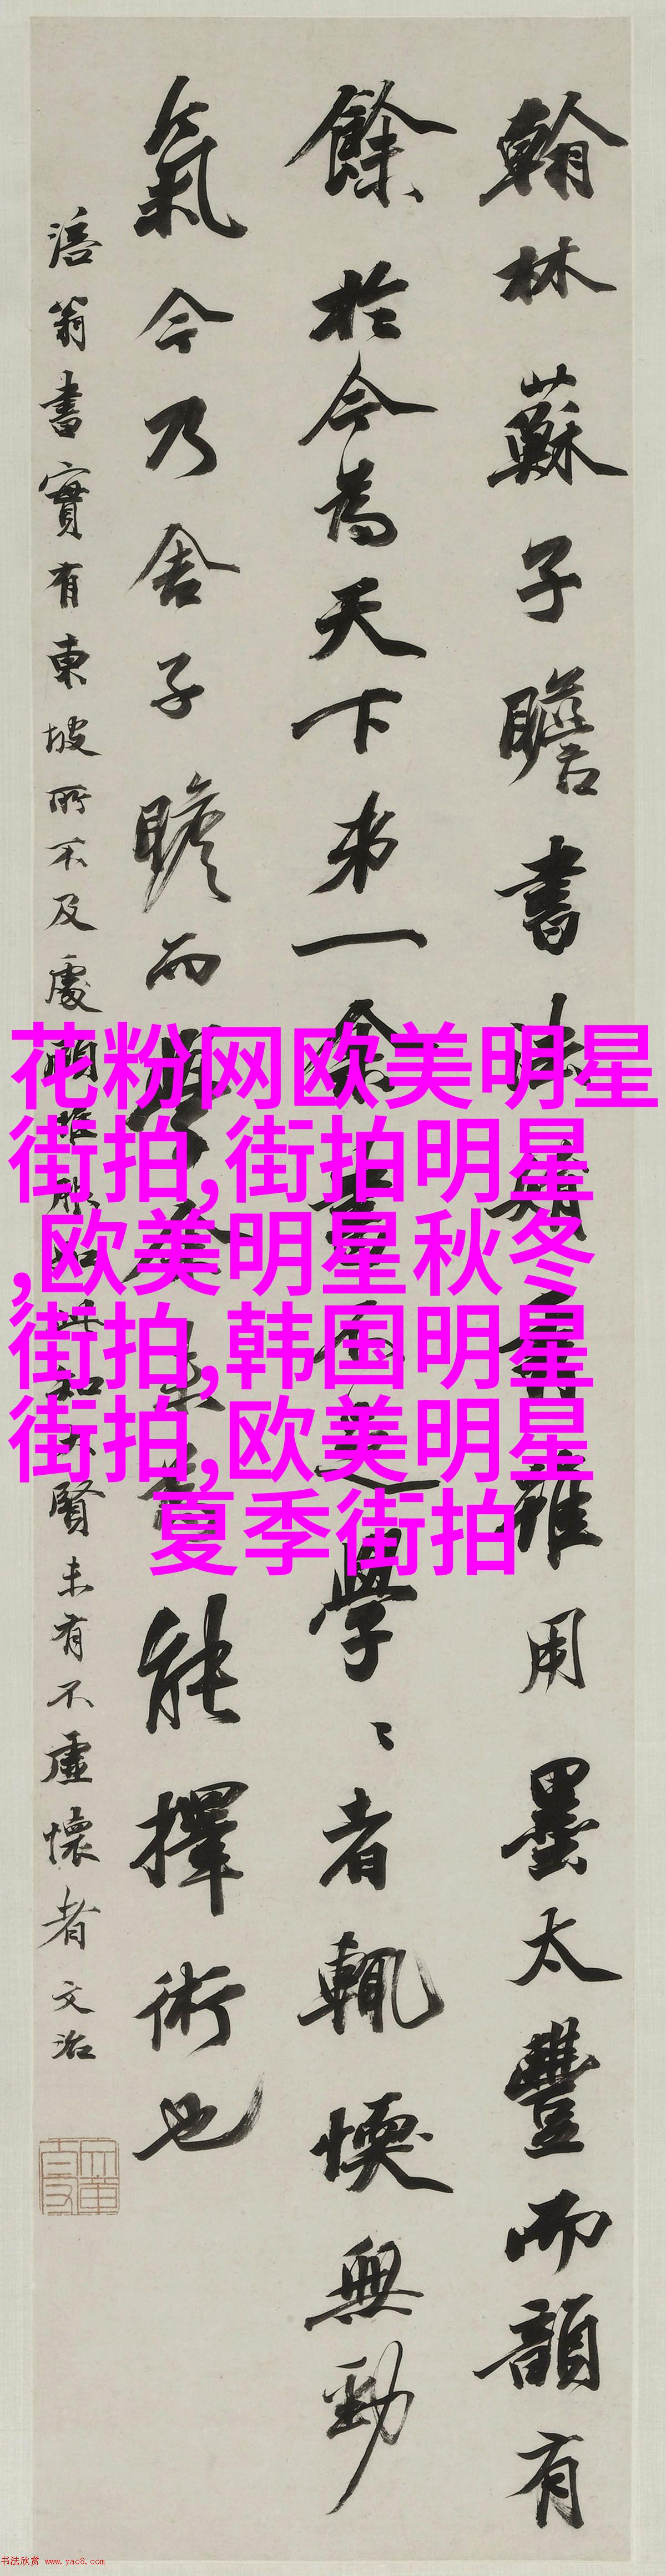 翰林蘇子瞻書法娟秀雖用墨太豐而韻有
餘於今為天下弟一余書不足學〻者輒愞無勁
氣今乃舍子瞻而學余未為能擇術也
涪翁書實有東坡所不及處顧推服如此知大賢未有不虛懷者文治
花粉网欧美明星
街拍,街拍明星
,欧美明星秋冬
街拍,韩国明星
街拍,欧美明星
夏季街拍
书法欣赏 www.yac8.com